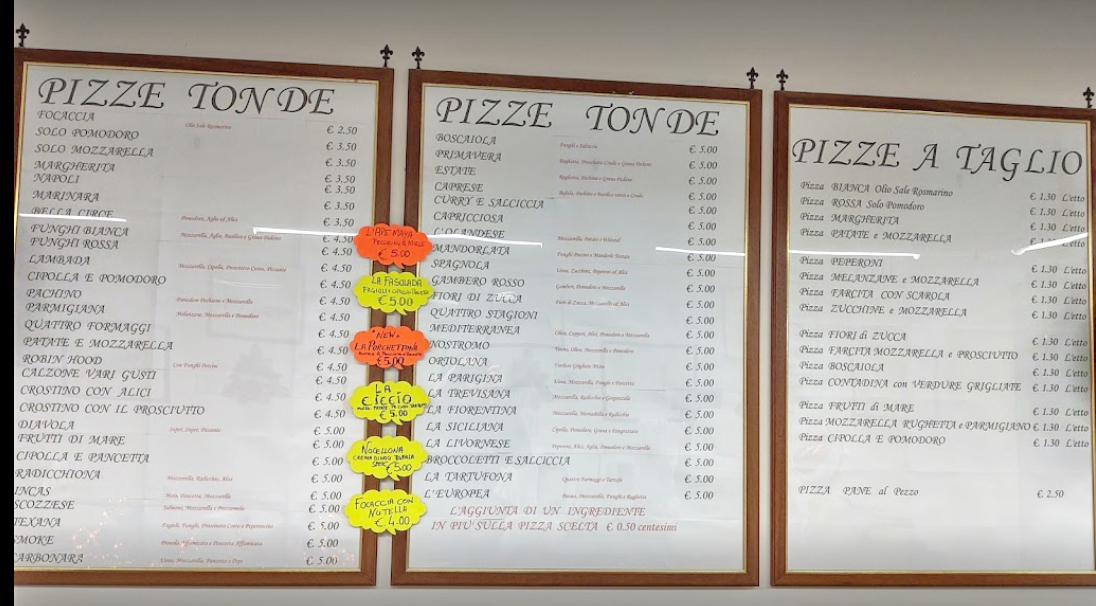 PIZZE TONDE
FOCACCIA Olio Sale Rosmarino € 2.50
SOLO POMODORO € 3.50
SOLO MOZZARELLA € 3.50
MARGHERITA € 3.50
NAPOLI € 3.50
MARINARA € 3.50
BELLA CIRCE Pomodoro, Aglio ed Alici € 3.50
FUNGHI BIANCA Mozzarella, Aglio, Basilico e Grana Padano € 4.50
FUNGHI ROSSA € 4.50
LAMBADA Mozzarella, Cipolla, Prosciutto Cotto, Piccante € 4.50
CIPOLLA E POMODORO € 4.50
PACHINO Pomodoro Pachino e Mozzarella € 4.50
PARMIGIANA Melanzane, Mozzarella e Pomodoro € 4.50
QUATTRO FORMAGGI € 4.50
PATATE E MOZZARELLA € 4.50
ROBIN HOOD Con Funghi Porcini € 4.50
CALZONE VARI GUSTI € 4.50
CROSTINO CON ALICI € 4.50
CROSTINO CON IL PROSCIUTTO € 4.50
DIAVOLA Super, Super, Piccante € 5.00
FRUTTI DI MARE € 5.00
CIPOLLA E PANCETTA € 5.00
RADICCHIONA Mozzarella, Radicchio, Alici € 5.00
INCAS Mais, Pancetta, Mozzarella € 5.00
SCOZZESE Salmone, Mozzarella e Prezzemolo € 5.00
TEXANA Fagioli, Funghi, Prosciutto Cotto e Peperoncino € 5.00
SMOKE Provola Affumicata e Pancetta Affumicata € 5.00
ARBONARA Uova, Mozzarella, Pancetta e Pepe € 5.00
L'APE MAYA
PECORINO & MIELE
€ 5.00
LA FASOLADA
€ 5.00
"NEW"
LA PORCHETTONA
€ 5.00
LA
CICCIO
€ 5.00
NOCELLONA
€ 5.00
FOCACCIA CON
NUTELLA
€ 4.00
PIZZE TONDE
BOSCAIOLA Funghi e Salsiccia € 5.00
PRIMAVERA Rughetta, Prosciutto Crudo e Grana Padano € 5.00
ESTATE Rughetta, Pachino e Grana Padano € 5.00
CAPRESE Bufala, Pachino e Basilico tutto a Crudo € 5.00
CURRY E SALCICCIA € 5.00
CAPRICCIOSA € 5.00
L'OLANDESE Mozzarella, Patate e Wurstel € 5.00
MANDORLATA Funghi Porcini e Mandorle Tostate € 5.00
SPAGNOLA Uova, Zucchine, Peperoni ed Alici € 5.00
GAMBERO ROSSO Gamberi, Pomodoro e Mozzarella € 5.00
FIORI DI ZUCCA Fiori di Zucca, Mozzarella ed Alici € 5.00
QUATTRO STAGIONI € 5.00
MEDITERRANEA Olive, Capperi, Alici, Pomodoro e Mozzarella € 5.00
NOSTROMO Tonno, Olive, Mozzarella e Pomodoro € 5.00
ORTOLANA Verdure Grigliate Miste € 5.00
LA PARIGINA Uova, Mozzarella, Funghi e Pancetta € 5.00
LA TREVISANA Mozzarella, Radicchio e Gorgonzola € 5.00
LA FIORENTINA € 5.00
LA SICILIANA € 5.00
LA LIVORNESE € 5.00
BROCCOLETTI E SALCICCIA € 5.00
LA TARTUFONA Quattro Formaggi e Tartufo € 5.00
L'EUROPEA € 5.00
L'AGGIUNTA DI UN INGREDIENTE
IN PIU' SULLA PIZZA SCELTA € 0.50 centesimi
PIZZE A TAGLIO
Pizza BIANCA Olio Sale Rosmarino € 1.30 L'etto
Pizza ROSSA Solo Pomodoro € 1.30 L'etto
Pizza MARGHERITA € 1.30 L'etto
Pizza PATATE e MOZZARELLA € 1.30 L'etto
Pizza PEPERONI € 1.30 L'etto
Pizza MELANZANE e MOZZARELLA € 1.30 L'etto
Pizza FARCITA CON SCAROLA € 1.30 L'etto
Pizza ZUCCHINE e MOZZARELLA € 1.30 L'etto
Pizza FIORI di ZUCCA € 1.30 L'etto
Pizza FARCITA MOZZARELLA e PROSCIUTTO € 1.30 L'etto
Pizza BOSCAIOLA € 1.30 L'etto
Pizza CONTADINA con VERDURE GRIGLIATE € 1.30 L'etto
Pizza FRUTTI di MARE € 1.30 L'etto
Pizza MOZZARELLA RUGHETTA e PARMIGIANO € 1.30 L'etto
Pizza CIPOLLA E POMODORO € 1.30 L'etto
PIZZA PANE al Pezzo € 2.50